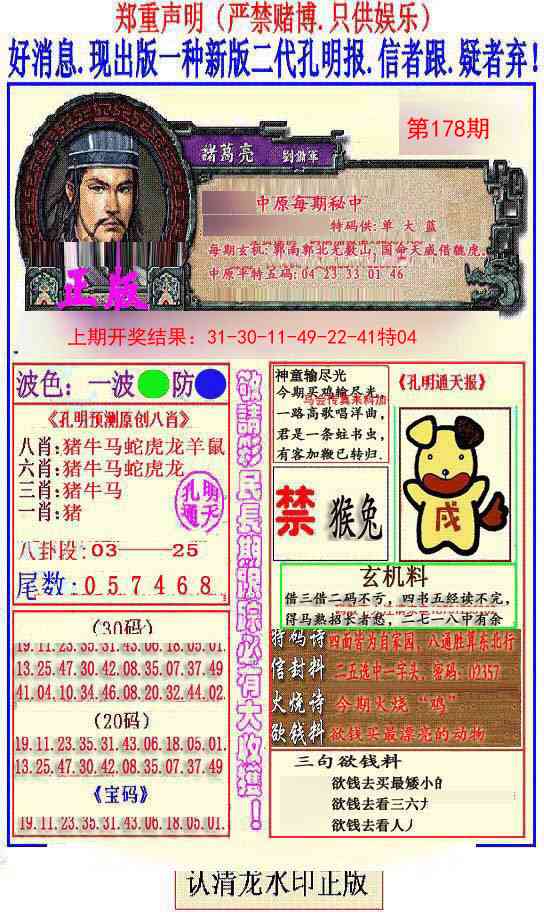 郑重声明（严禁赌博.只供娱乐）
好消息.现出版一种新版二代孔明报.信者跟.疑者弃！
第178期
諸葛亮
中原每期秘中
特码供:单 大 蓝
每期玄机:郭南郭北无数山,国命天威借魏虎.
中原平特五码:04 23 33 01 46
正版
上期开奖结果：31-30-11-49-22-41特04
波色：一波 防
《孔明预测原创八肖》
八肖:猪牛马蛇虎龙羊鼠
六肖:猪牛马蛇虎龙
三肖:猪牛马
一肖:猪
孔明
通天
八卦段:03——25
尾数:057468
(30码)
19.11.23.35.31.43.06.18.05.01.
13.25.47.30.42.08.35.07.37.49
41.04.10.34.46.08.20.32.44.02
(20码)
19.11.23.35.31.43.06.18.05.01.
13.25.47.30.42.08.35.07.37.49.
《宝码》
19.11.23.35.31.43.06.18.05.01.
敬請彩民長期跟踪必有大收獲！
神童输尽光
今期买鸡输尽光,
一路高歌唱洋曲,
君是一条蛀书虫,
有客加鞭已转归.
《孔明通天报》
禁 猴兔
戌
玄机料
借三借二码不亏，四书五经读不完,
得马熟招长者愁，二七一八中有余
特码诗 四面皆为自家园，八通胜算东北行
信封料 二五选中一字头，密码：02357
火烧诗 今期火烧“鸡”
欲钱料 欲钱买最漂亮的动物
三句欲钱料
欲钱去买最矮小的
欲钱去看三六
欲钱去看人
认清龙水印正版